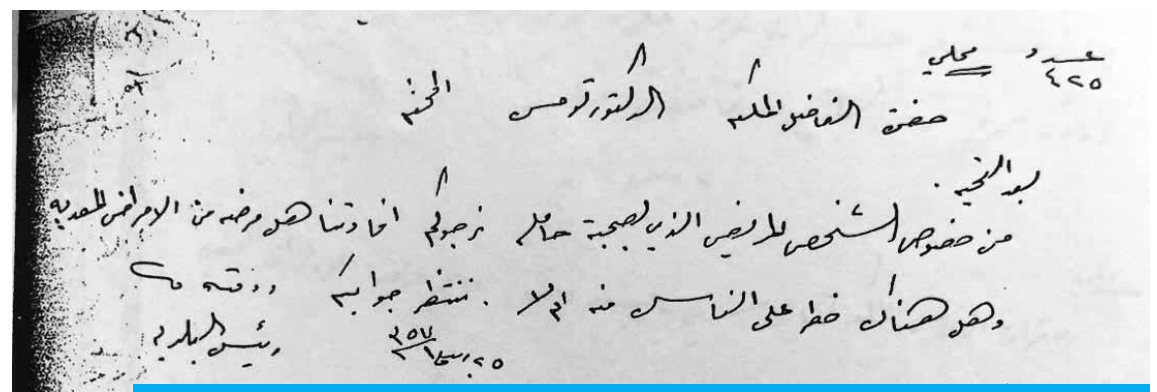 عدد محلي
٤٢٥
حضرة الفاضل المكرم الدكتور تومس المحترم
بعد التحية .
من خصوص الشخص المريض الذي بصحبة حامله نرجوكم افادتنا هل مرضه من الامراض المعديه
وهل هناك خطر على الناس منه ام لا . ننتظر جوابكم ودمتم
٢٥ ٣٥٧
رئيس البلديه